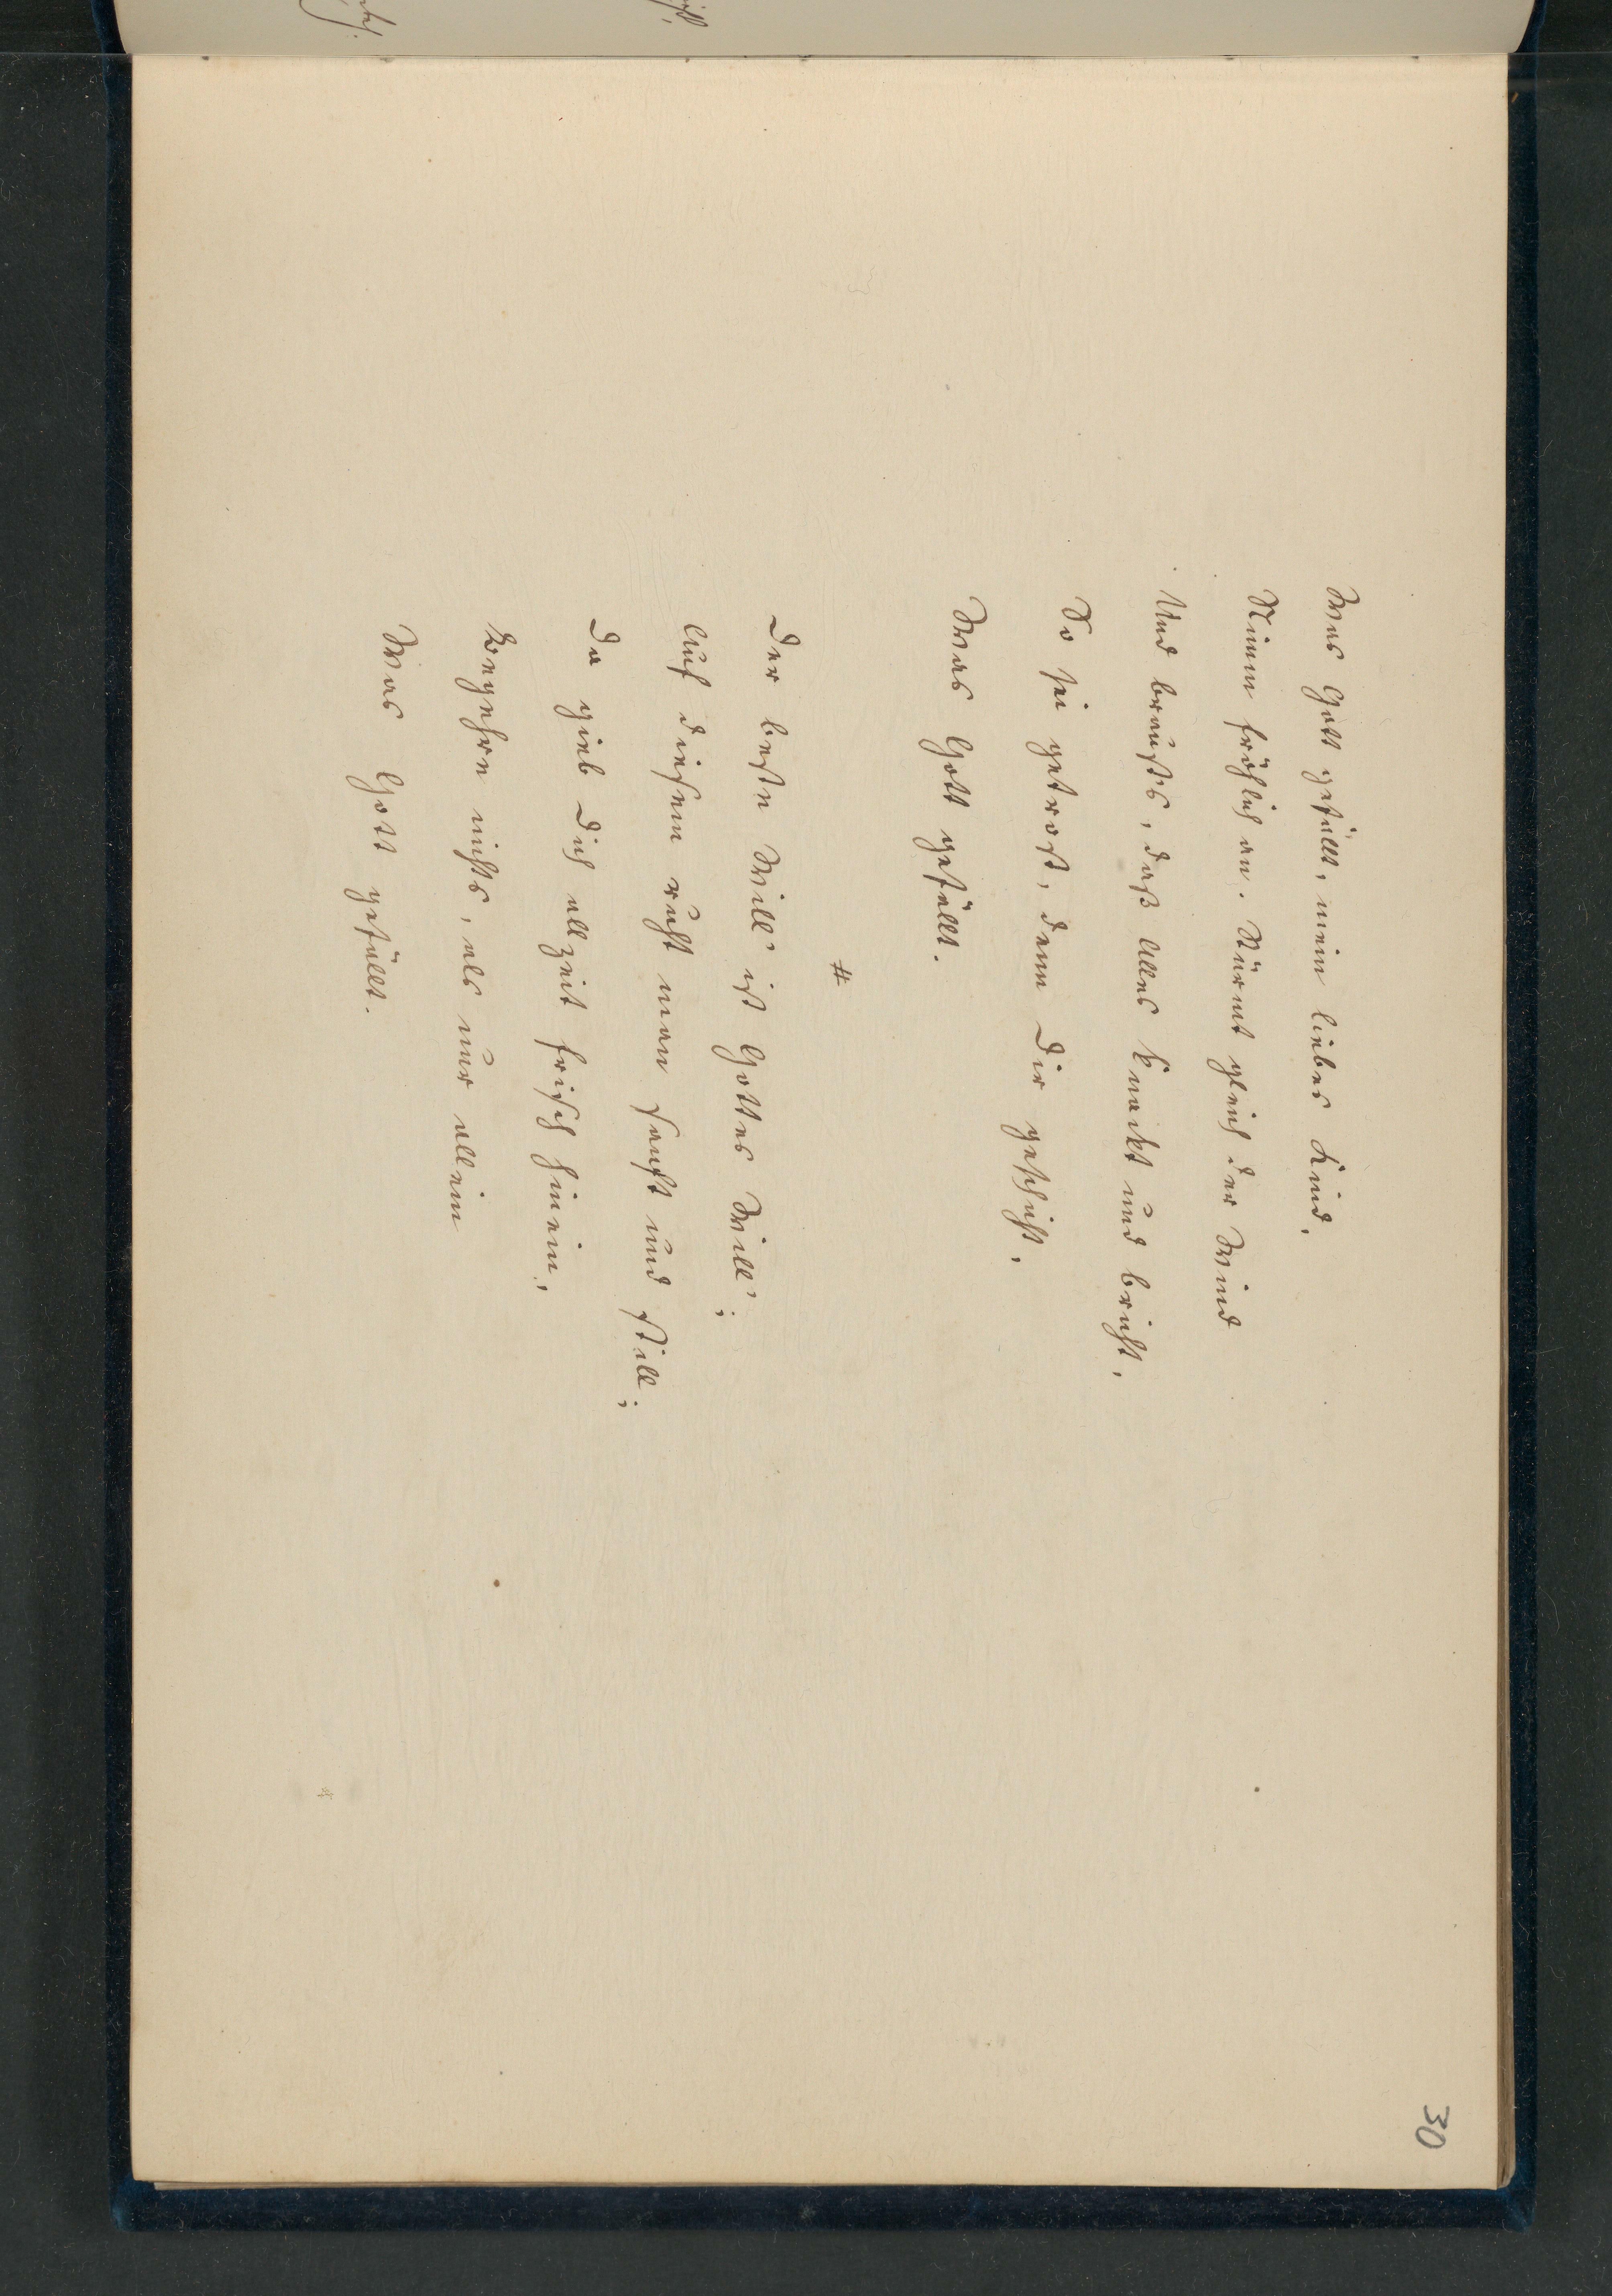 30
Was Gott gefällt, mein liebes Kind,
Nimm fröhlich an. Stürmt gleich der Wind
Und braust's, daß Alles knackt und bricht,
So sei getrost, denn Dir geschicht,
Was Gott gefällt.
#
Der beste Will' ist Gottes Will';
Auf diesem ruht man sanft und still;
Da gieb Dich allzeit frisch hinein,
Begehre nichts, als nur allein
Was Gott gefällt.